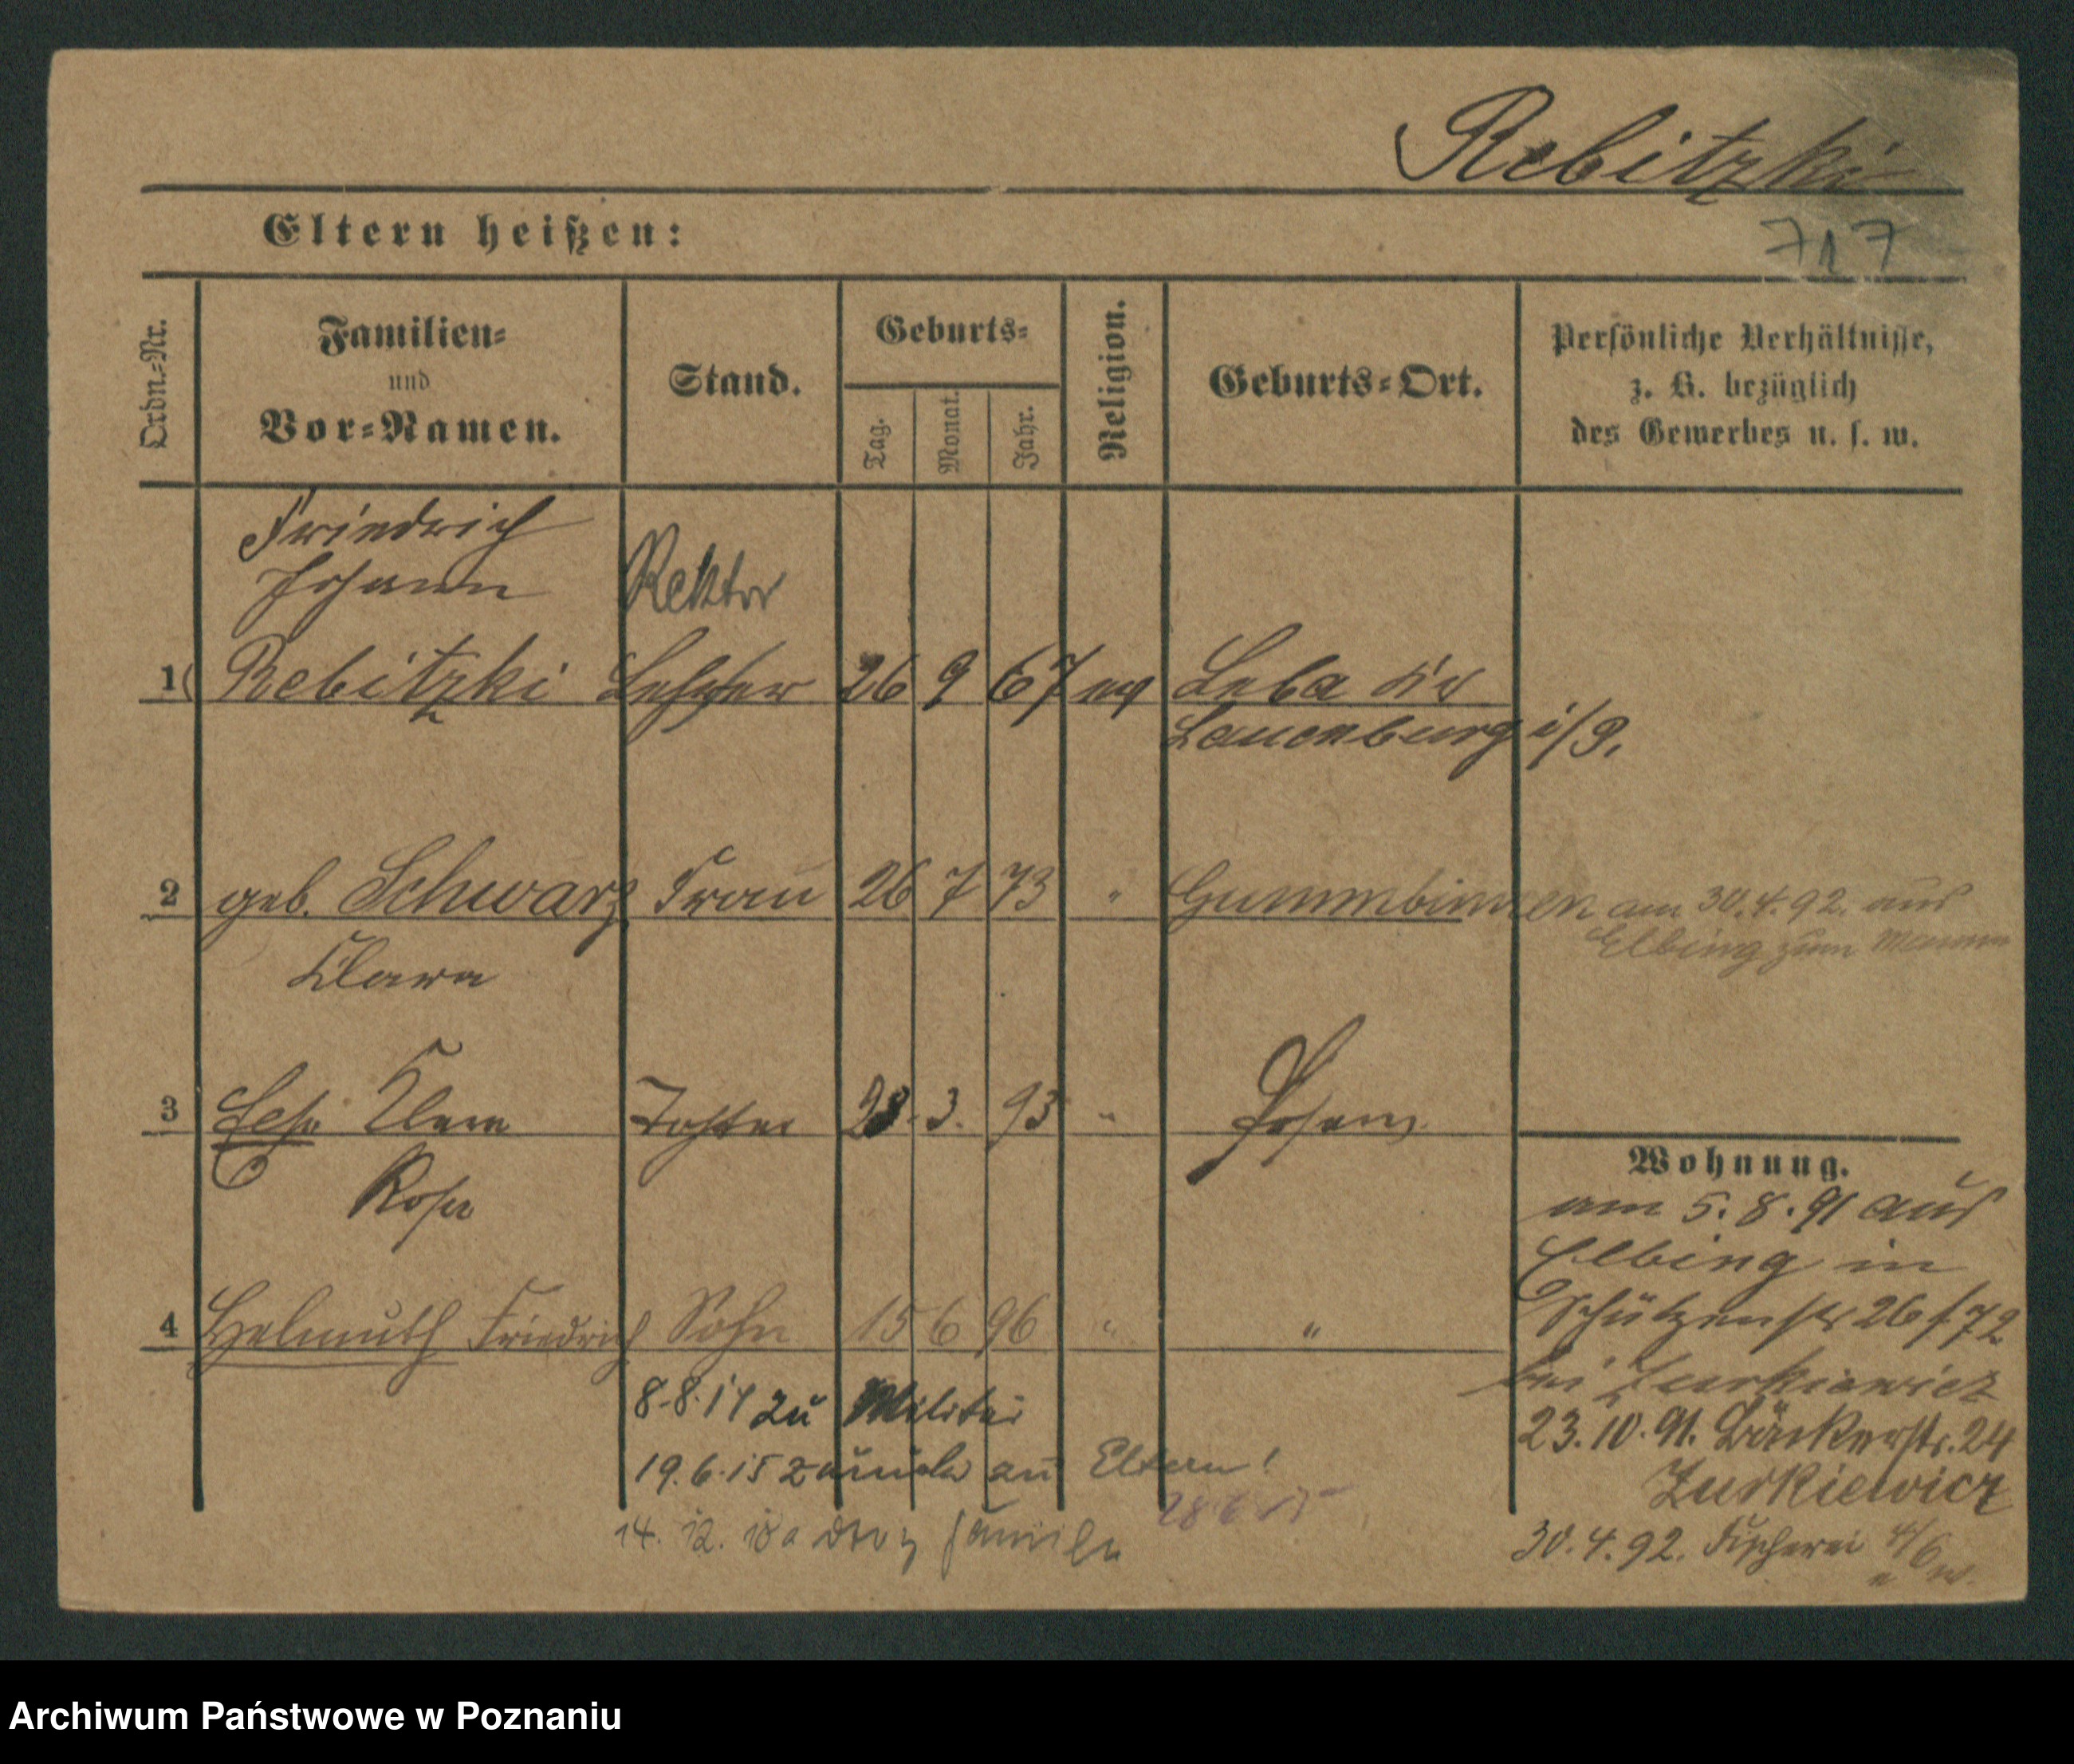 Rebitzki
717
Eltern heißen:
Ordn.-Nr.
Familien-
und
Vor-Namen.
Stand.
Geburts-
Tag.
Monat.
Jahr.
Religion.
Geburts-Ort.
Persönliche Verhältnisse,
z. B. bezüglich
des Gewerbes u. s. w.
Friedrich
Johann
Rektor
1 Rebitzki Lehrer 26 9 67 ev Leba Kr
Lauenburg i/P.
2 geb. Schwarz Frau 26 7 73 " Gummbinnen am 30.4.92. aus
Elbing zum Manne
Klara
3 Clara Tochter 28. 3. 93 " Posen
Rosa
Wohnung.
am 5. 8. 91 aus
Elbing in
Schützenstr 26 / 72
bei Zurkiewicz
23.10.91. Bäckerstr. 24
Zurkiewicz
30.4.92. Fischerei 4/6
4 Helmuth Friedrich Sohn 15 6 96 " "
8.8.14 zu Militär
19.6.15 zurück zu Eltern!
28.6.15
14. 12. 18 Familie
Archiwum Państwowe w Poznaniu